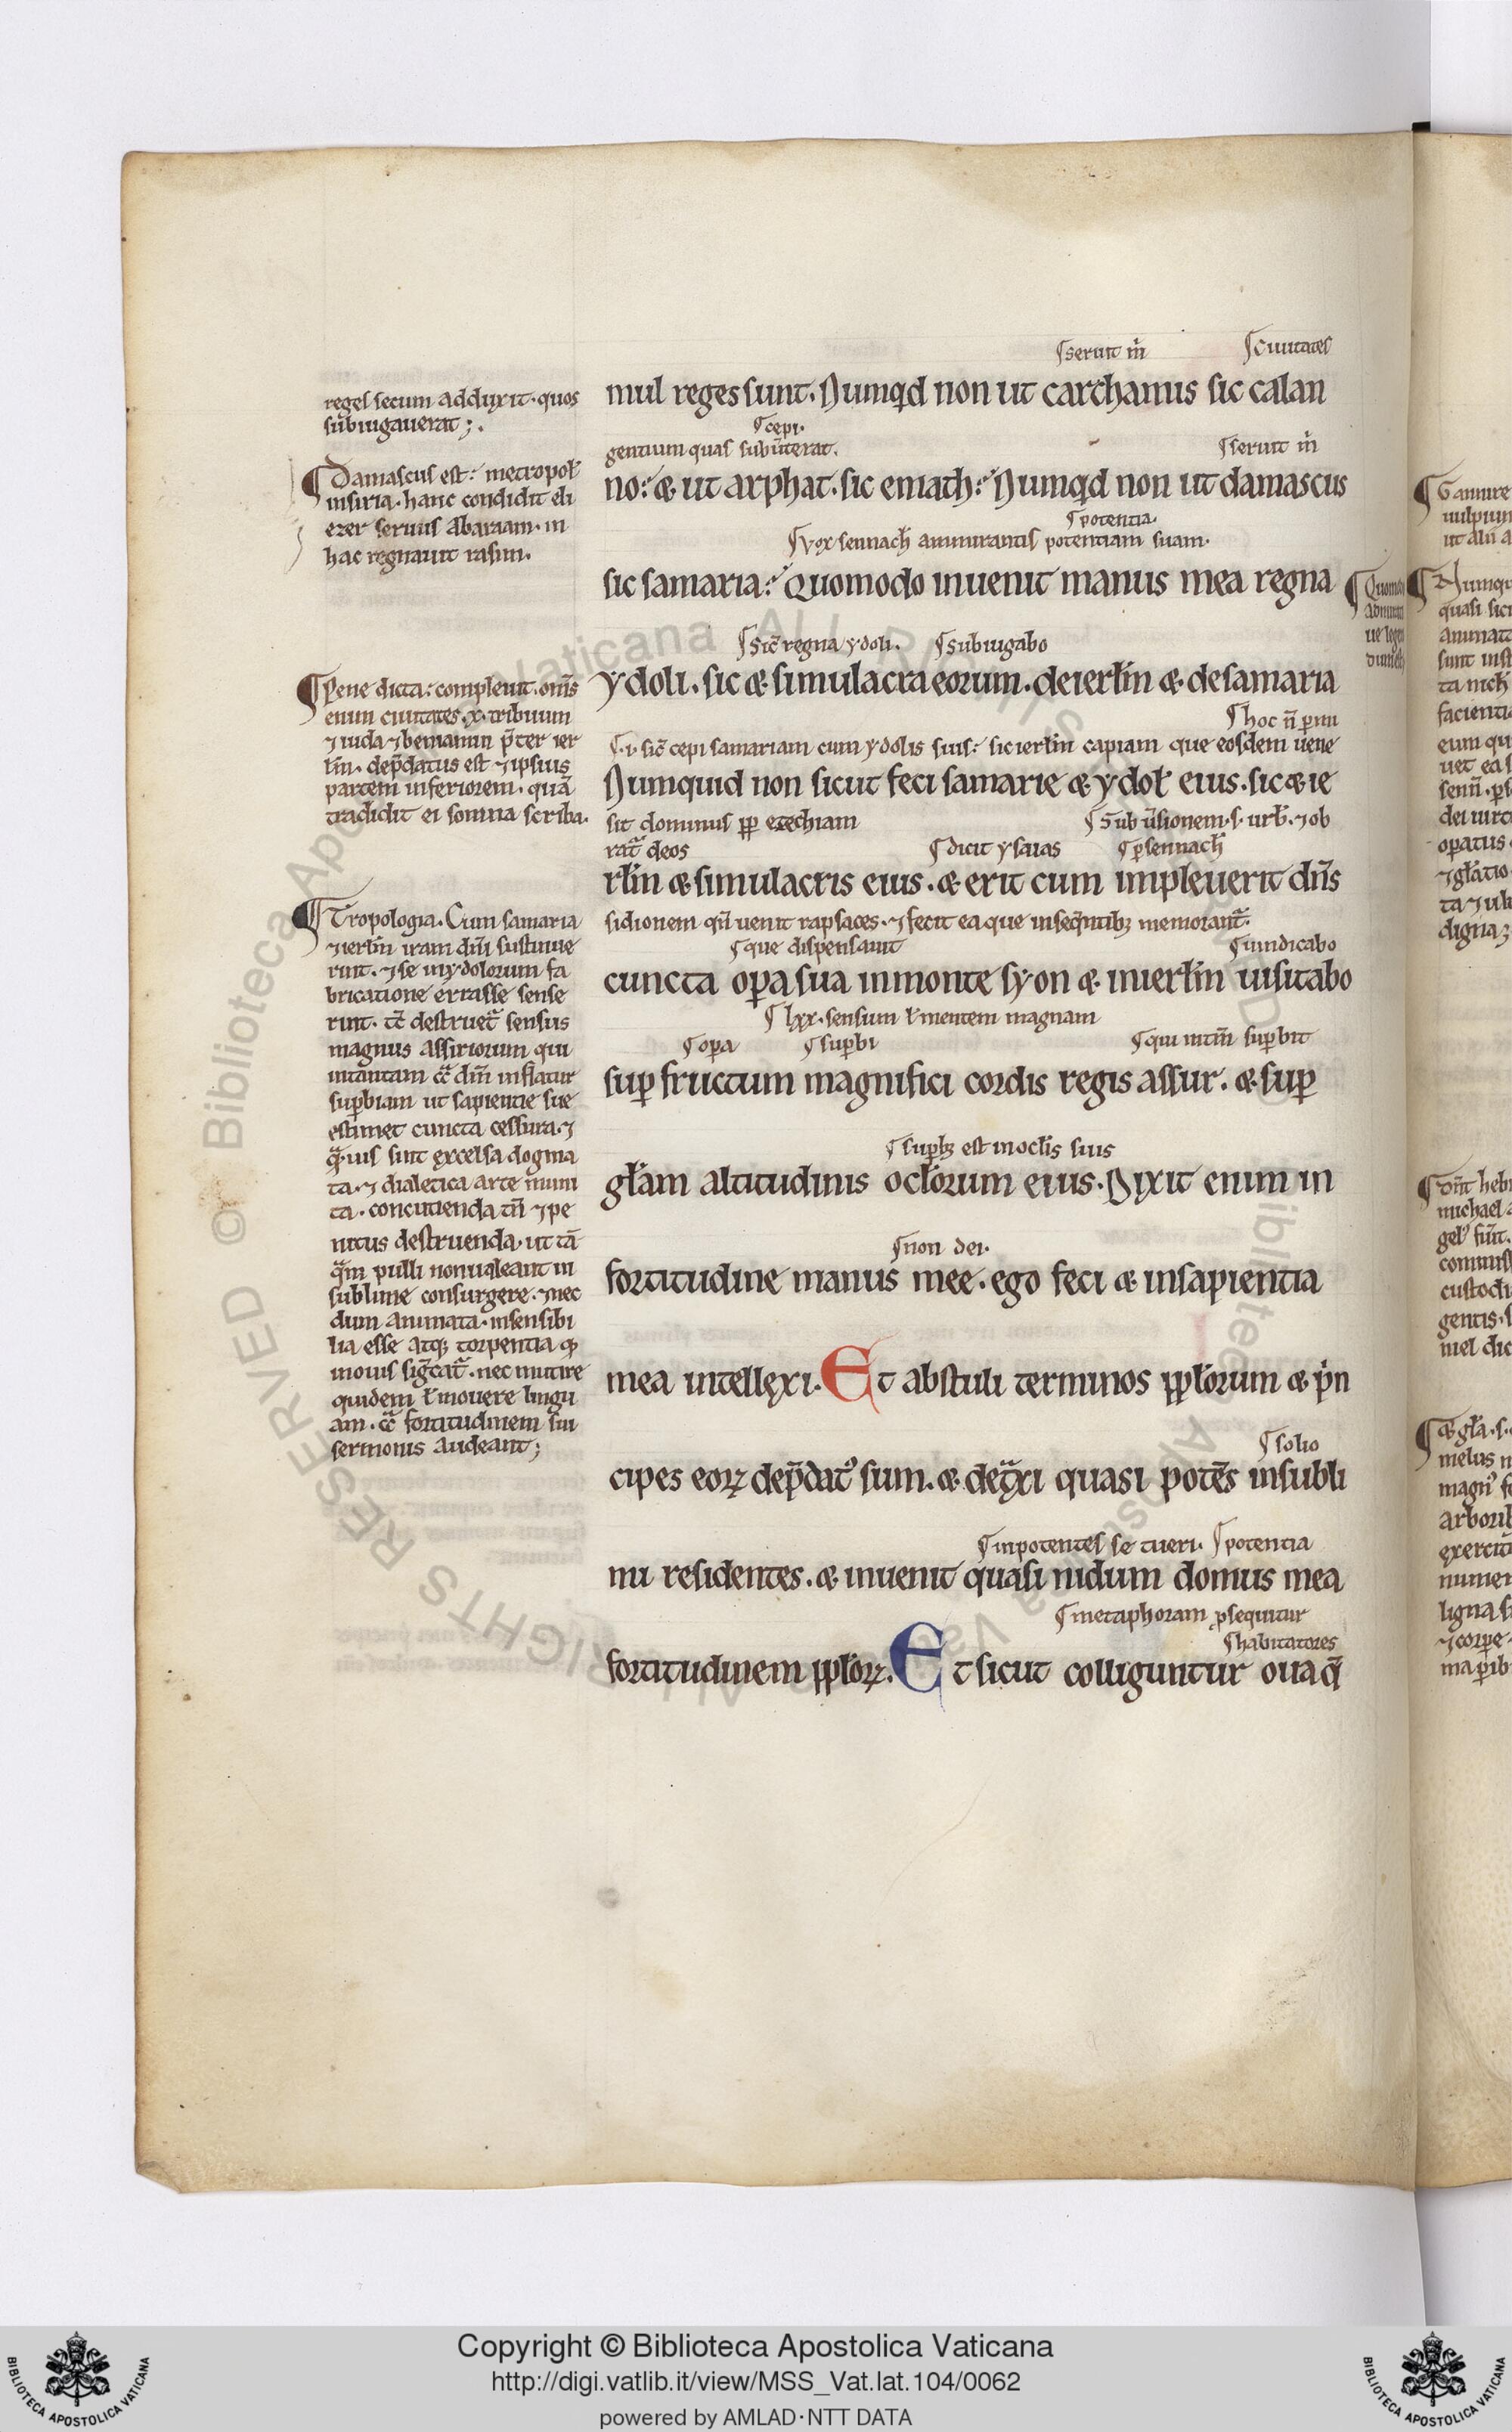 reges secum adduxit. quos
subiugauerat;.
¶Damascus est: metropoł
insiria. hanc condidit eli
ezer seruus abaraam. in
hac regnauit rasin.
¶Pene dicta: compleuit. om̄s
enim ciuitates .x. tribuum
⁊ iuda ⁊ beniamin p̄ter ier
łm. dep̄datus est ⁊ ipsius
partem inferiorem. quā
tradidit ei somna scriba.
¶Tropologia. Cum samaria
⁊ ierłm iram dn̄i sustinue
runt. ⁊ se inydolorum fa
bricatione errasse sense
rint. tc̄ destruet᷑ sensus
magnus assiriorum qui
intantam cc̄ dm̄ inflatur
supbiam ut sapientie sue
estimet cuncta cessura. ⁊
q̄uis sint excelsa dogma
ta. ⁊ dialetica arte muni
ta. concutienda tn̄ ⁊ pe
nitus destruenda. ut tā
q̄m pulli nonualeant in
sublime consurgere. ⁊ nec
dum animata. insensibi
lia esse atq; torpentia
mouis sigc̄at᷑. nec mutire
quidem ł mouere lingu
am. cc̄ fortitudinem sui
sermonis audeant;
¶seruit m̄ ¶Ciuitates
mul reges sunt. Numqd non ut carchamis sic calan
¶cepi.
gentium quas subūterat. ¶seruit m̄
no: & ut arphat. sic emath: Numqd non ut damascus
¶potentia.
¶vox sennach̄ annumerantis potentiam suam.
sic samaria: Quomodo inuenit manus mea regna
¶Sic̄ regna ydoli. ¶subiugabo
ydoli. sic & simulacra eorum. deierłm & desamaria
¶hoc n̄ pmi
¶.i. sic̄ cepi samariam cum ydolis suis: sic ierłm capiam que eosdem uene
Numquid non sicut feci samarie & ydoł eius. sic & ie
sit dominus pp ezechiam ¶Sub ūsionem .s. urb̄. ⁊ ob
rat᷑ deos ¶dicit ysaias ¶p sennach̄
rłm & simulacris eius. & erit cum impleuerit dn̄s
sidionem qn̄ uenit rapsaces. ⁊ fecit ea que inseq̄ntib; memorant᷑.
¶que dispensauit ¶uindicabo
cuncta opa sua inmonte syon & inierłm uisitabo
¶lxx. sensum ł mentem magnam
¶opa ¶supbi ¶qui intm̄ supbit
sup fructum magnifici cordis regis assur. & sup
¶supb; est inocłis suis
głam altitudinis ocłorum eius. Dixit enim in
¶non dei.
fortitudine manus mee. ego feci & insapientia
mea intellexi. Et abstuli terminos ppłorum & pn
¶solio
cipes eorꝝ dep̄dat᷒ sum. & det᷑xi quasi potēs insubli
¶inpotentes se tueri. ¶potentia
mi residentes. & inuenit quasi nidum domus mea
¶metaphoram psequitur
¶habitatores
fortitudinem ppłorꝝ. Et sicut colliguntur oua q̄
Copyright © Biblioteca Apostolica Vaticana
http://digi.vatlib.it/view/MSS_Vat.lat.104/0062
powered by AMLAD·NTT DATA
BIBLIOTECA APOSTOLICA VATICANA
BIBLIOTECA APOSTOLICA VATICANA